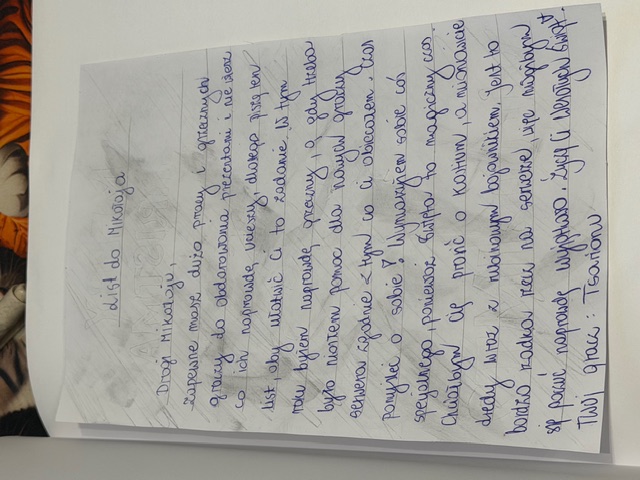 List do Mikołaja
Drogi Mikołaju,
Zapewne masz dużo pracy i grzecznych
graczy do obdarowania prezentami i nie wiesz
co ich naprawdę ucieszy, dlatego piszę ten
list, aby ułatwić Ci to zadanie. W tym
roku byłem naprawdę grzeczny, a gdy trzeba
było niosłem pomoc dla nowych graczy
serwera zgodnie z tym co Ci obiecałem. Czas
pomyśleć o sobie? Wymarzyłem sobie coś
specjalnego, ponieważ Święta to magiczny czas
Chciałbym Cię prosić o kostium, a mianowicie
dredy wraz z rubinowym bojownikiem. Jest to
bardzo rzadka rzecz na serwerze, więc mógłbym
się poczuć naprawdę wyjątkowo. Życzę Ci Wesołych Świąt
Twój gracz: Tsarionv